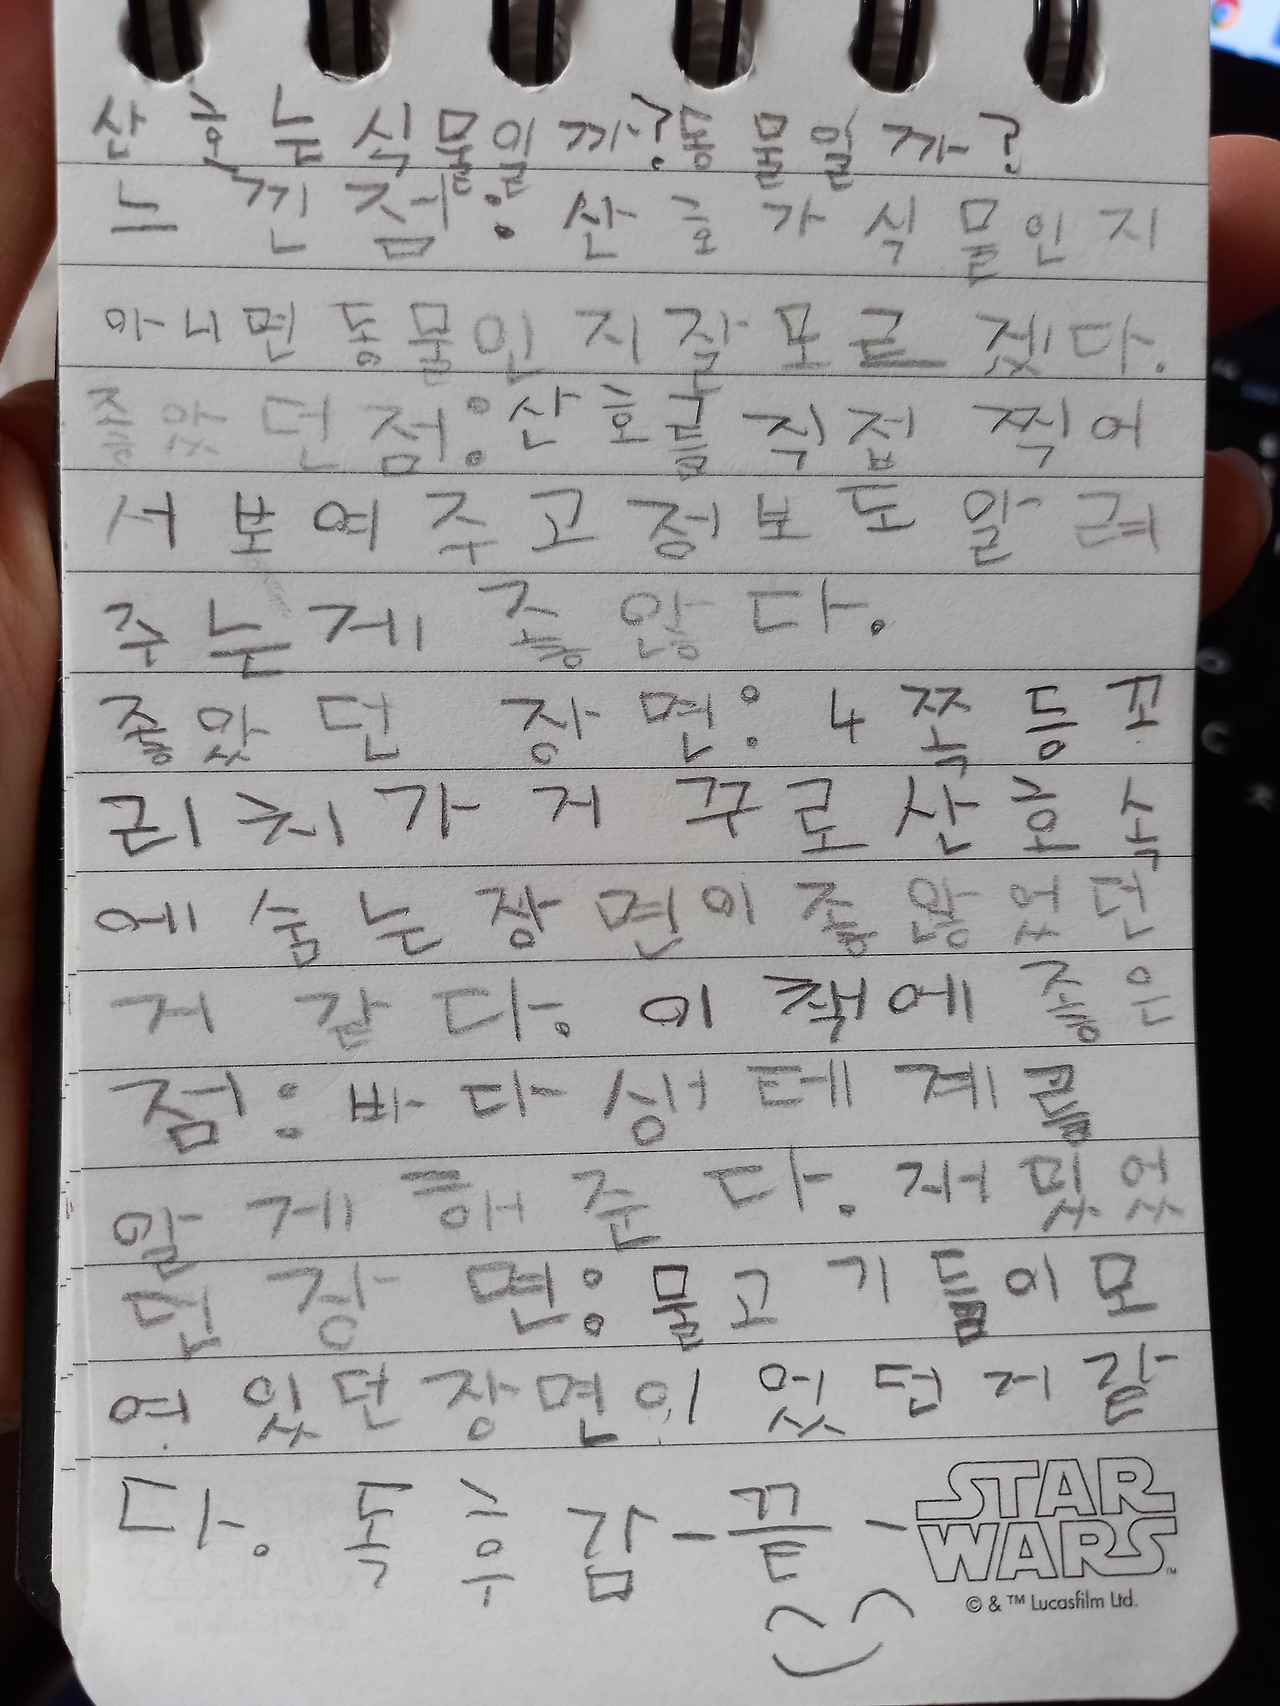 산호는 식물일까? 동물일까?
느낀점: 산호가 식물인지
아니면 동물인지 잘 모르겠다.
좋았던 점: 산호를 직접 찍어
서 보여주고 정보도 알려
주는게 좋았다.
좋았던 장면: 4쪽 등꼬
리치가 거꾸로 산호 속
에 숨는 장면이 좋았었던
거 같다. 이 책에 좋은
점: 바다 생테계를
알게 해준다. 재밌었
던 장면: 물고기들이 모
여 있던 장면이 었던거 같
다. 독후감 -끝-
STAR
WARS™
© & ™ Lucasfilm Ltd.